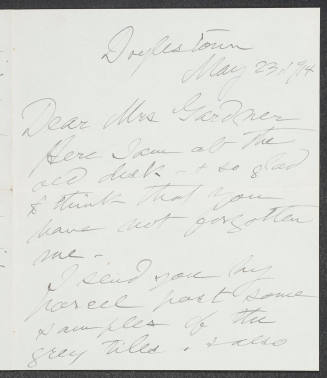 Doylestown
May 23, 1914
Dear Mrs Gardner
Here I am at the
old desk - & so glad
to think that you
have not forgotten
me -
I send you by
parcel post some
samples of the
grey tiles, & also